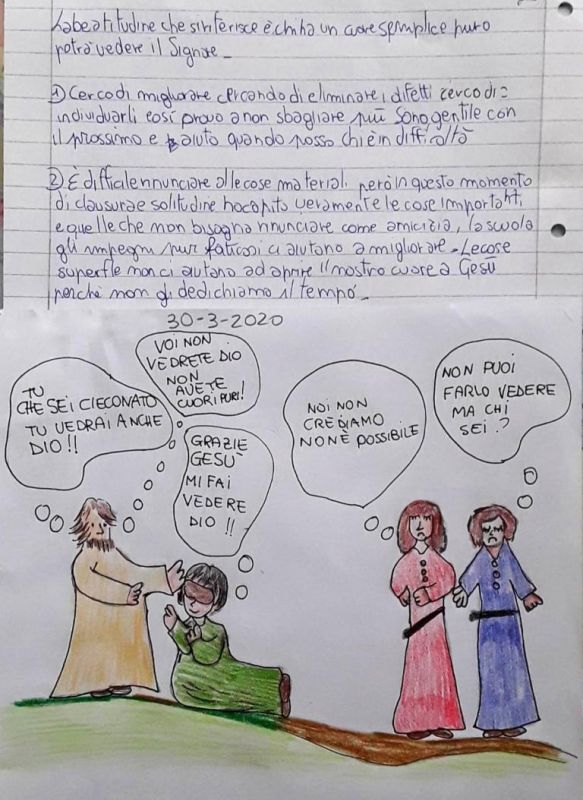 La beatitudine che si riferisce è chi ha un cuore semplice puro
potrà vedere il Signore.
1) Cerco di migliorare cercando di eliminare i difetti cerco di
individuarli così provo a non sbagliare più sono gentile con
il prossimo e aiuto quando posso chi è in difficoltà
2) È difficile rinunciare alle cose materiali però in questo momento
di clausura e solitudine ho capito veramente le cose importanti
e quelle che non bisogna rinunciare come amicizia, la scuola
gli impegni pur faticosi ci aiutano a migliorare. Le cose
superflue non ci aiutano ad aprire il nostro cuore a Gesù
perché non gli dedichiamo il tempo.
30-3-2020
TU
CHE SEI CIECO NATO
TU VEDRAI ANCHE
DIO!!
VOI NON
VEDRETE DIO
NON
AVETE
CUORI PURI!
GRAZIE
GESÙ
MI FAI
VEDERE
DIO !!
NOI NON
CREDIAMO
NON È POSSIBILE
NON PUOI
FARLO VEDERE
MA CHI
SEI?